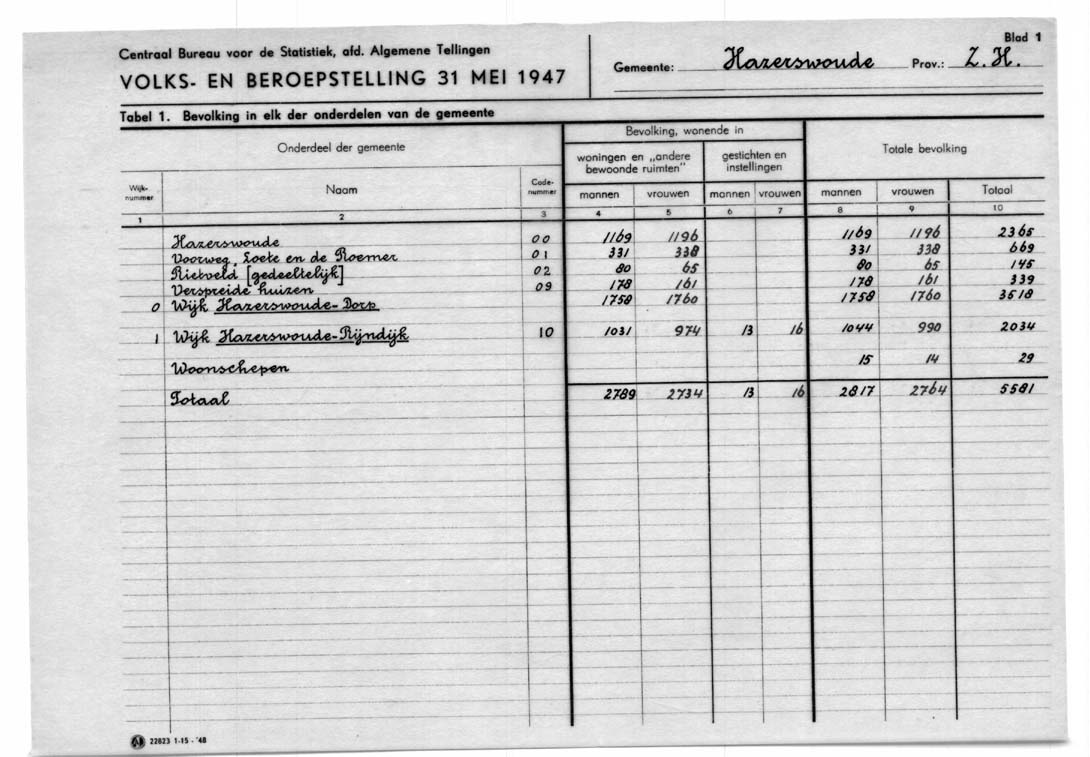 Centraal Bureau voor de Statistiek, afd. Algemene Tellingen
VOLKS- EN BEROEPSTELLING 31 MEI 1947
Gemeente: Hazerswoude Prov.: Z.H.
Blad 1
Tabel 1. Bevolking in elk der onderdelen van de gemeente
Onderdeel der gemeente
Bevolking, wonende in
Totale bevolking
woningen en „andere bewoonde ruimten"
gestichten en instellingen
Wijk-nummer Naam Code-nummer mannen vrouwen mannen vrouwen mannen vrouwen Totaal
1 2 3 4 5 6 7 8 9 10
Hazerswoude 00 1169 1196 1169 1196 2365
Voorweg, Loete en de Roemer 01 331 338 331 338 669
Rietveld [gedeeltelijk] 02 80 65 80 65 145
Verspreide huizen 09 178 161 178 161 339
0 Wijk Hazerswoude-Dorp 1758 1760 1758 1760 3518
1 Wijk Hazerswoude-Rijndijk 10 1031 974 13 16 1044 990 2034
Woonschepen 15 14 29
Totaal 2789 2734 13 16 2817 2764 5581
22823 1-15-'48